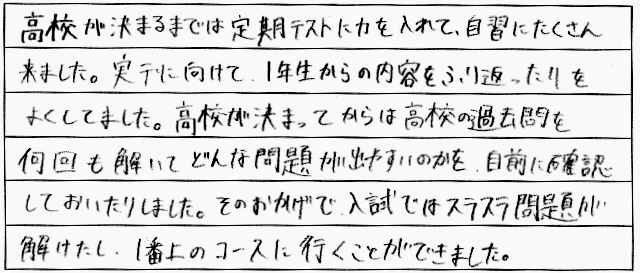 高校が決まるまでは定期テストに力を入れて、自習にたくさん
来ました。実テに向けて、1年生からの内容をふり返ったりを
よくしてました。高校が決まってからは高校の過去問を
何回も解いてどんな問題が出やすいのかを、自前に確認
しておいたりしました。そのおかげで、入試ではスラスラ問題が
解けたし、1番上のコースに行くことができました。